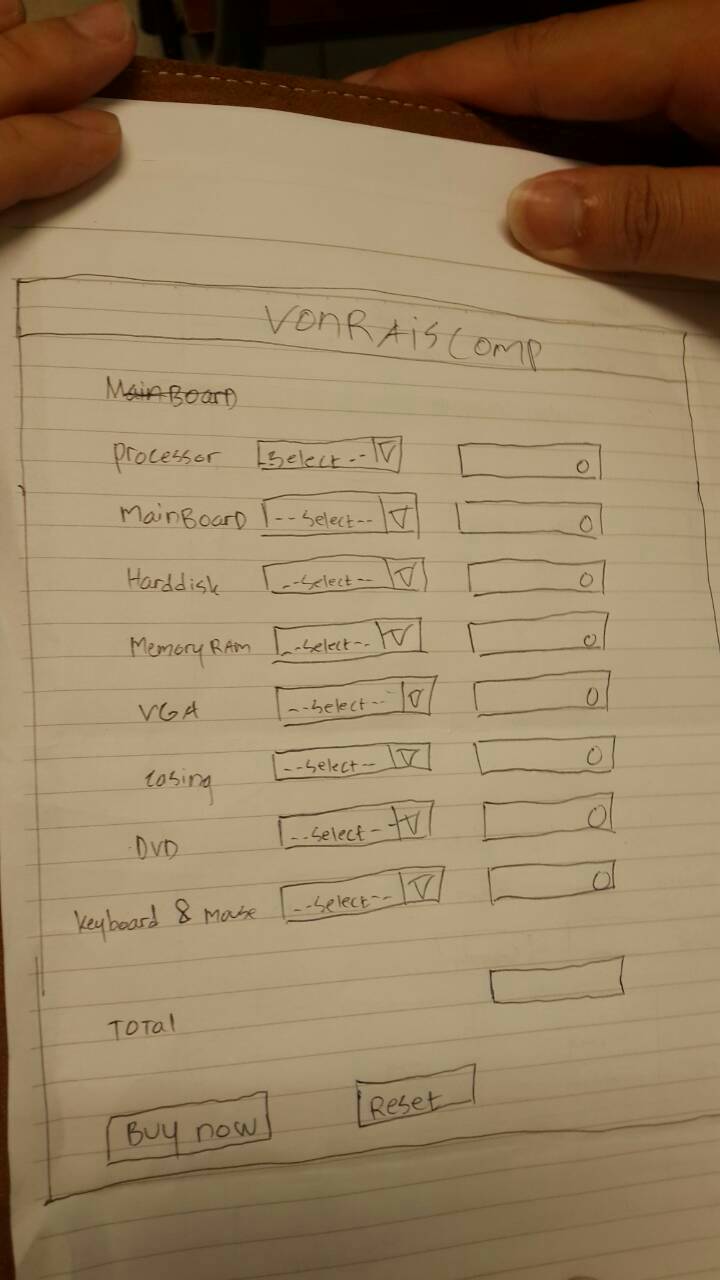 VONRAISCOMP
MainBoard
Processor Select-- 0
MainBoard --Select-- 0
Harddisk --Select-- 0
Memory RAM --Select-- 0
VGA --Select-- 0
Casing --Select-- 0
DVD --Select- 0
Keyboard & Mouse --Select-- 0
Total
Buy now Reset